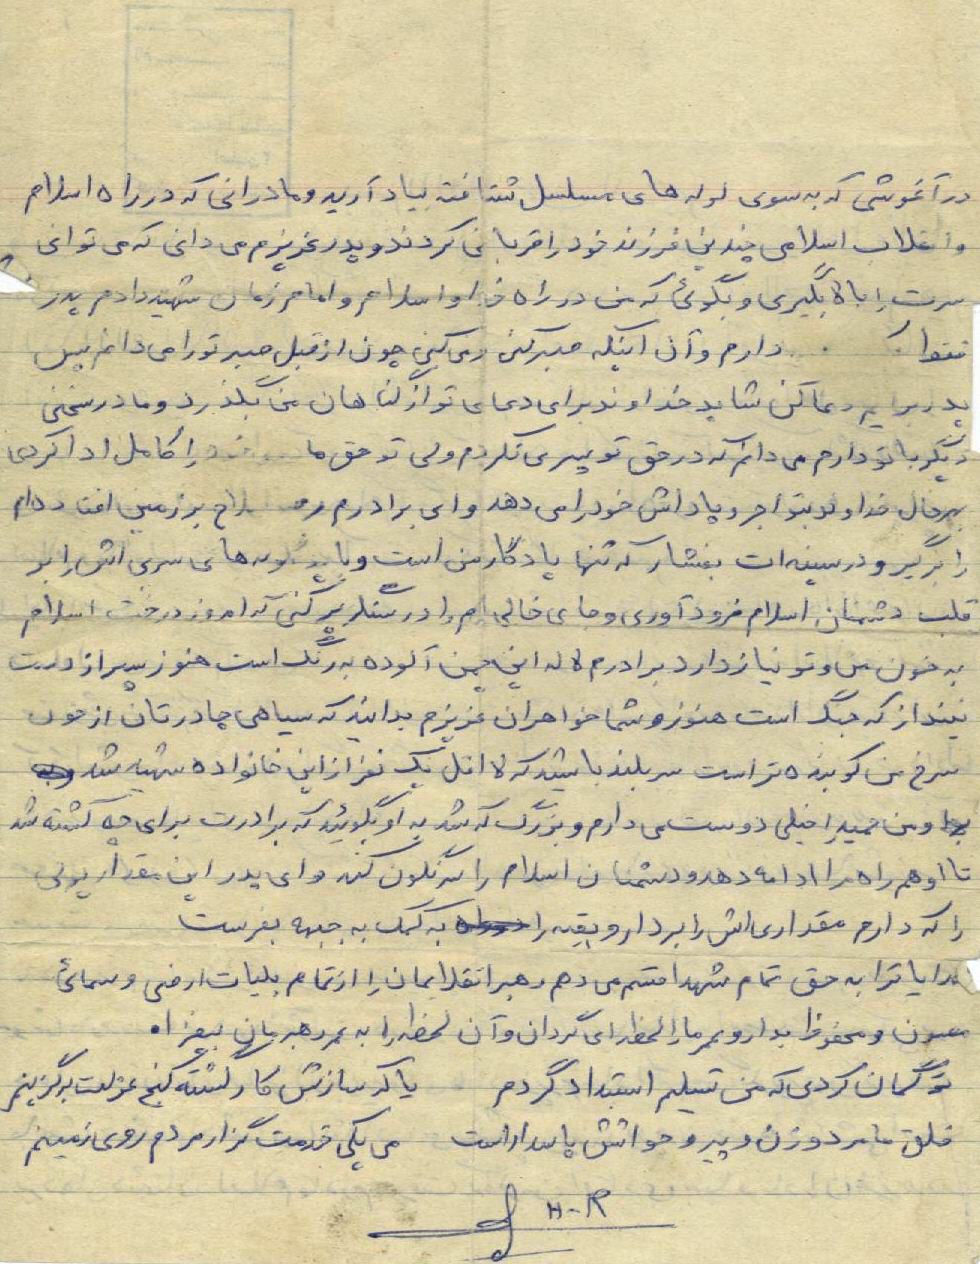 در آغوشی که به سوی لوله های مسلسل شتافته بیاد آرید و مادرانی که در راه اسلام
و انقلاب اسلامی چندین فرزند خود را قربانی کردند و پدر عزیزم می دانی که می توانی
سرت را بالا بگیری و بگوئی که من در راه خدا و اسلام و امام زمان شهید دادم پدر
فقط دارم و آن اینکه صبر کنی چون از قبل صبر تو را می دانم پس
پدر برایم دعا کن شاید خداوند برای دعای تو از گناهان من بگذرد و مادر سخنی
دیگر با تو دارم می دانم که در حق تو پسری نکردم ولی تو حق را کامل ادا کردی
بهرحال خداوند بتو اجر و پاداش خود را می دهد و ای برادرم بر زمین افتاده ام
را برگیر و در سینه ات بفشار که تنها یادگار من است و باید گلوله های سربی اش را بر
قلب دشمنان اسلام فرود آوری و جای خالی ام را در سنگر پر کنی که امروز درخت اسلام
به خون من و تو نیاز دارد برادرم لاله این چمن آلوده به رنگ است هنوز سپر از دست
نینداز که جنگ است هنوز و شما خواهران عزیزم بدانید که سیاهی چادرتان از خون
سرخ من کوبنده تر است سربلند باشید که لااقل یک نفر از این خانواده شهید شد
و من حمید را خیلی دوست می دارم و بزرگ که شد به او بگوئید که برادرت برای چه کشته شد
تا او هم راه مرا ادامه دهد و دشمنان اسلام را سرنگون کند و ای پدر این مقدار پولی
را که دارم مقداری اش را بردار و بقیه را به کمک به جبهه بفرست
خدایا ترا به حق تمام شهدا قسم می دهم رهبر انقلابمان را از تمام بلیات ارضی و سمائی
مصون و محفوظ بدار و عمر ما را لحظه ای گردان و آن لحظه را به عمر رهبرمان بیفزا.
تو گمان کردی که من تسلیم استبداد گردم یا که سازش کار گشته کنج عزلت برگزینم
خلق ما مرد و زن و پیر و جوانش پاسدار است من یکی خدمت گزار مردم روی زمینم
H-R